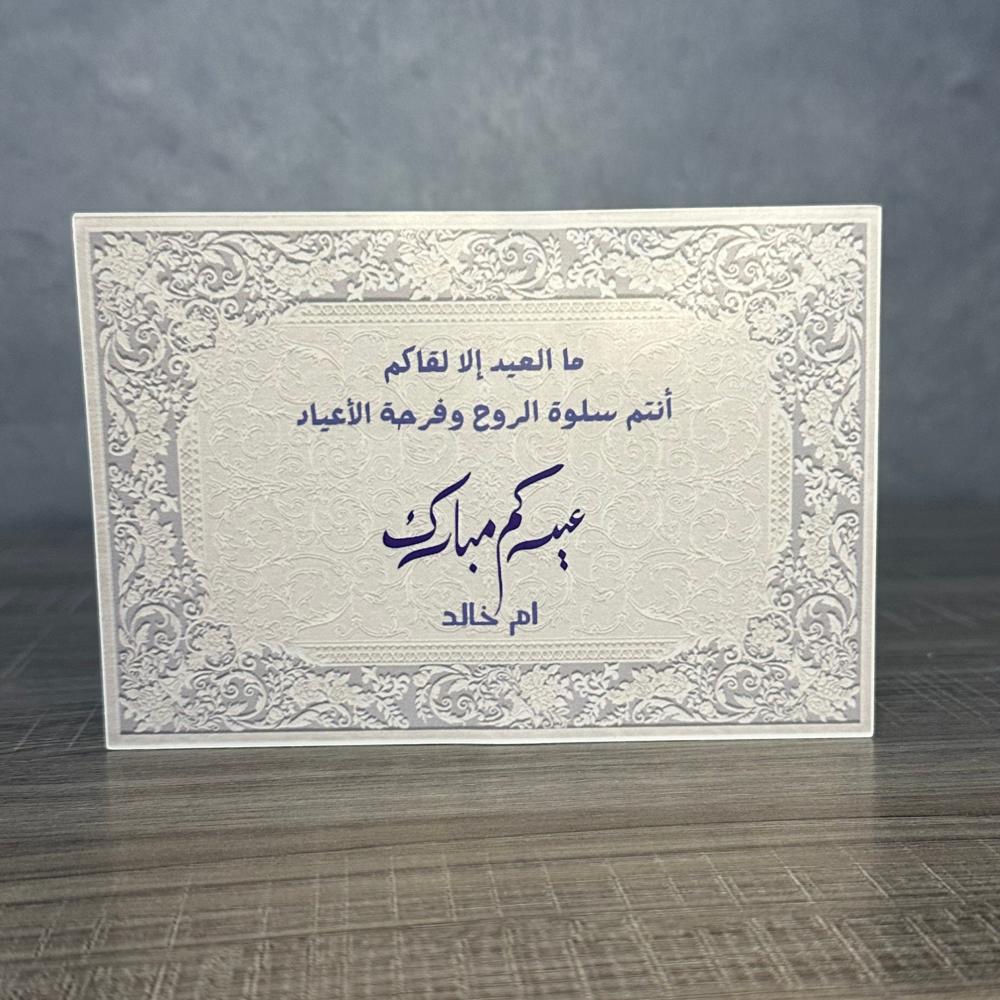 ما العيد إلا لقاكم
أنتم سلوة الروح وفرحة الأعياد
عيدكم مبارك
ام خالد